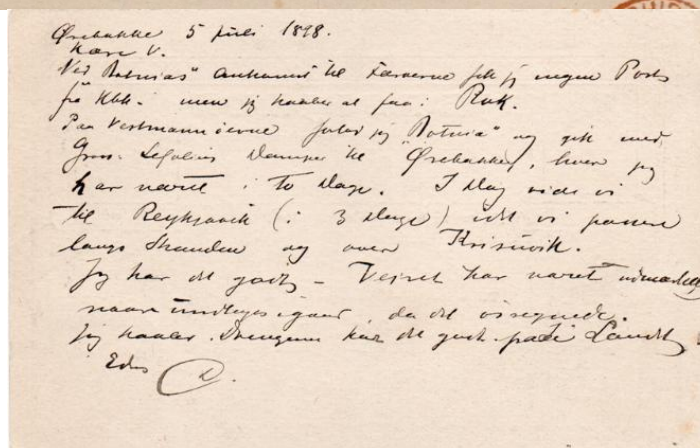 Ørebakke 5 Juli 1898.
Kære V.
Ved "Botnias" Ankomst til Færøerne fik jeg ingen Post
fra Kbh. men jeg haaber at faa i Rvk.
Paa Vestmannøerne forlod jeg "Botnia" og gik med
Gross. Lefoliis Damper til "Ørebakke", hvor jeg
har været i to Dage. I Dag ride vi
til Reykjavik (i 3 Dage) idet vi passere
langs Stranden og over Krisuvik.
Jeg har det godt – Vejret har været udmærket,
naar undtages igaar, da det
Jeg haaber Drengene har det godt paa Landet
Eders D.